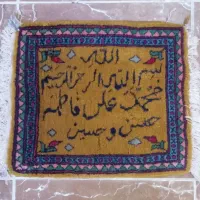 الله
بسم الله الرحمن الرحيم
محمد علی فاطمه
حسن و حسین